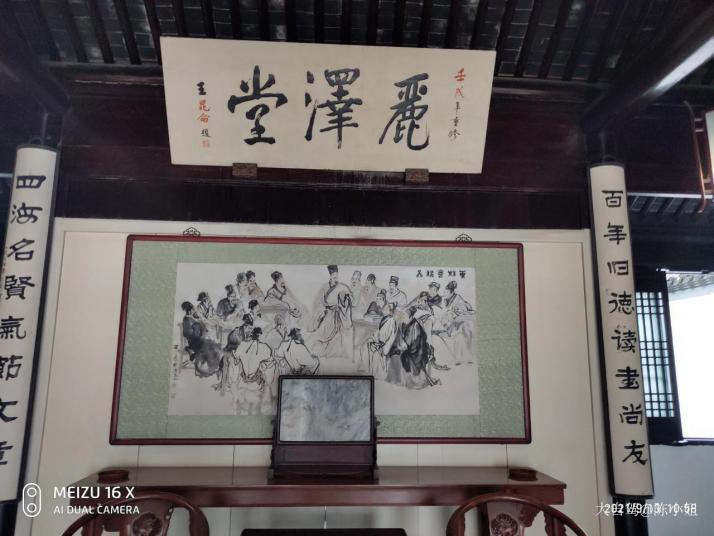 麗澤堂
壬戌年重修
王昆侖題
百年旧德读書尚友
四海名賢氣節文章
MEIZU 16 X
AI DUAL CAMERA